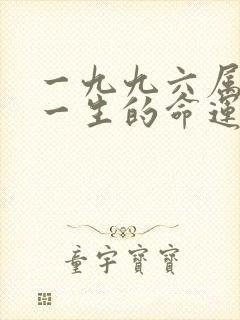 一九九六属
一生的命运
童宇寶寶